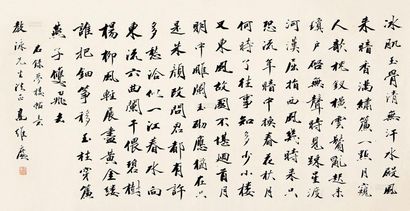 冰肌玉骨清無汗水殿風
來暗香滿繡簾一顆月窺
人欹枕釵橫雲鬢亂起來
瓊戶啟無聲時見疏星渡
河漢屈指西風幾時來只
恐流年暗換春花秋月
何時了往事知多少小樓
又東風故國不堪迴首月
明中雕闌玉砌應猶在只
是朱顏改問君都有許
多愁恰似一江春水向
東流六曲闌干偎碧樹
楊柳風輕展盡黃金縷
誰把鈿箏移玉柱穿簾
燕子雙飛去
右錄夢樓帖
泳先生法正